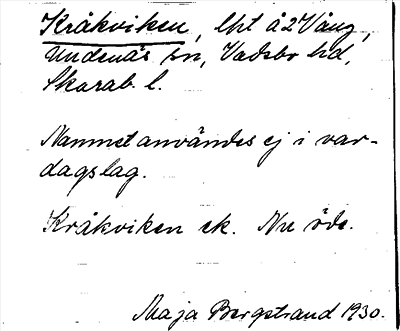 Kråkviken, lht å 2 Vång,
Undenäs sn, Vadsbo hd,
Skarab. l.
Namnet användes ej i var-
dagslag.
Kråkviken ek. Nu öde.
Maja Bergstrand 1930.